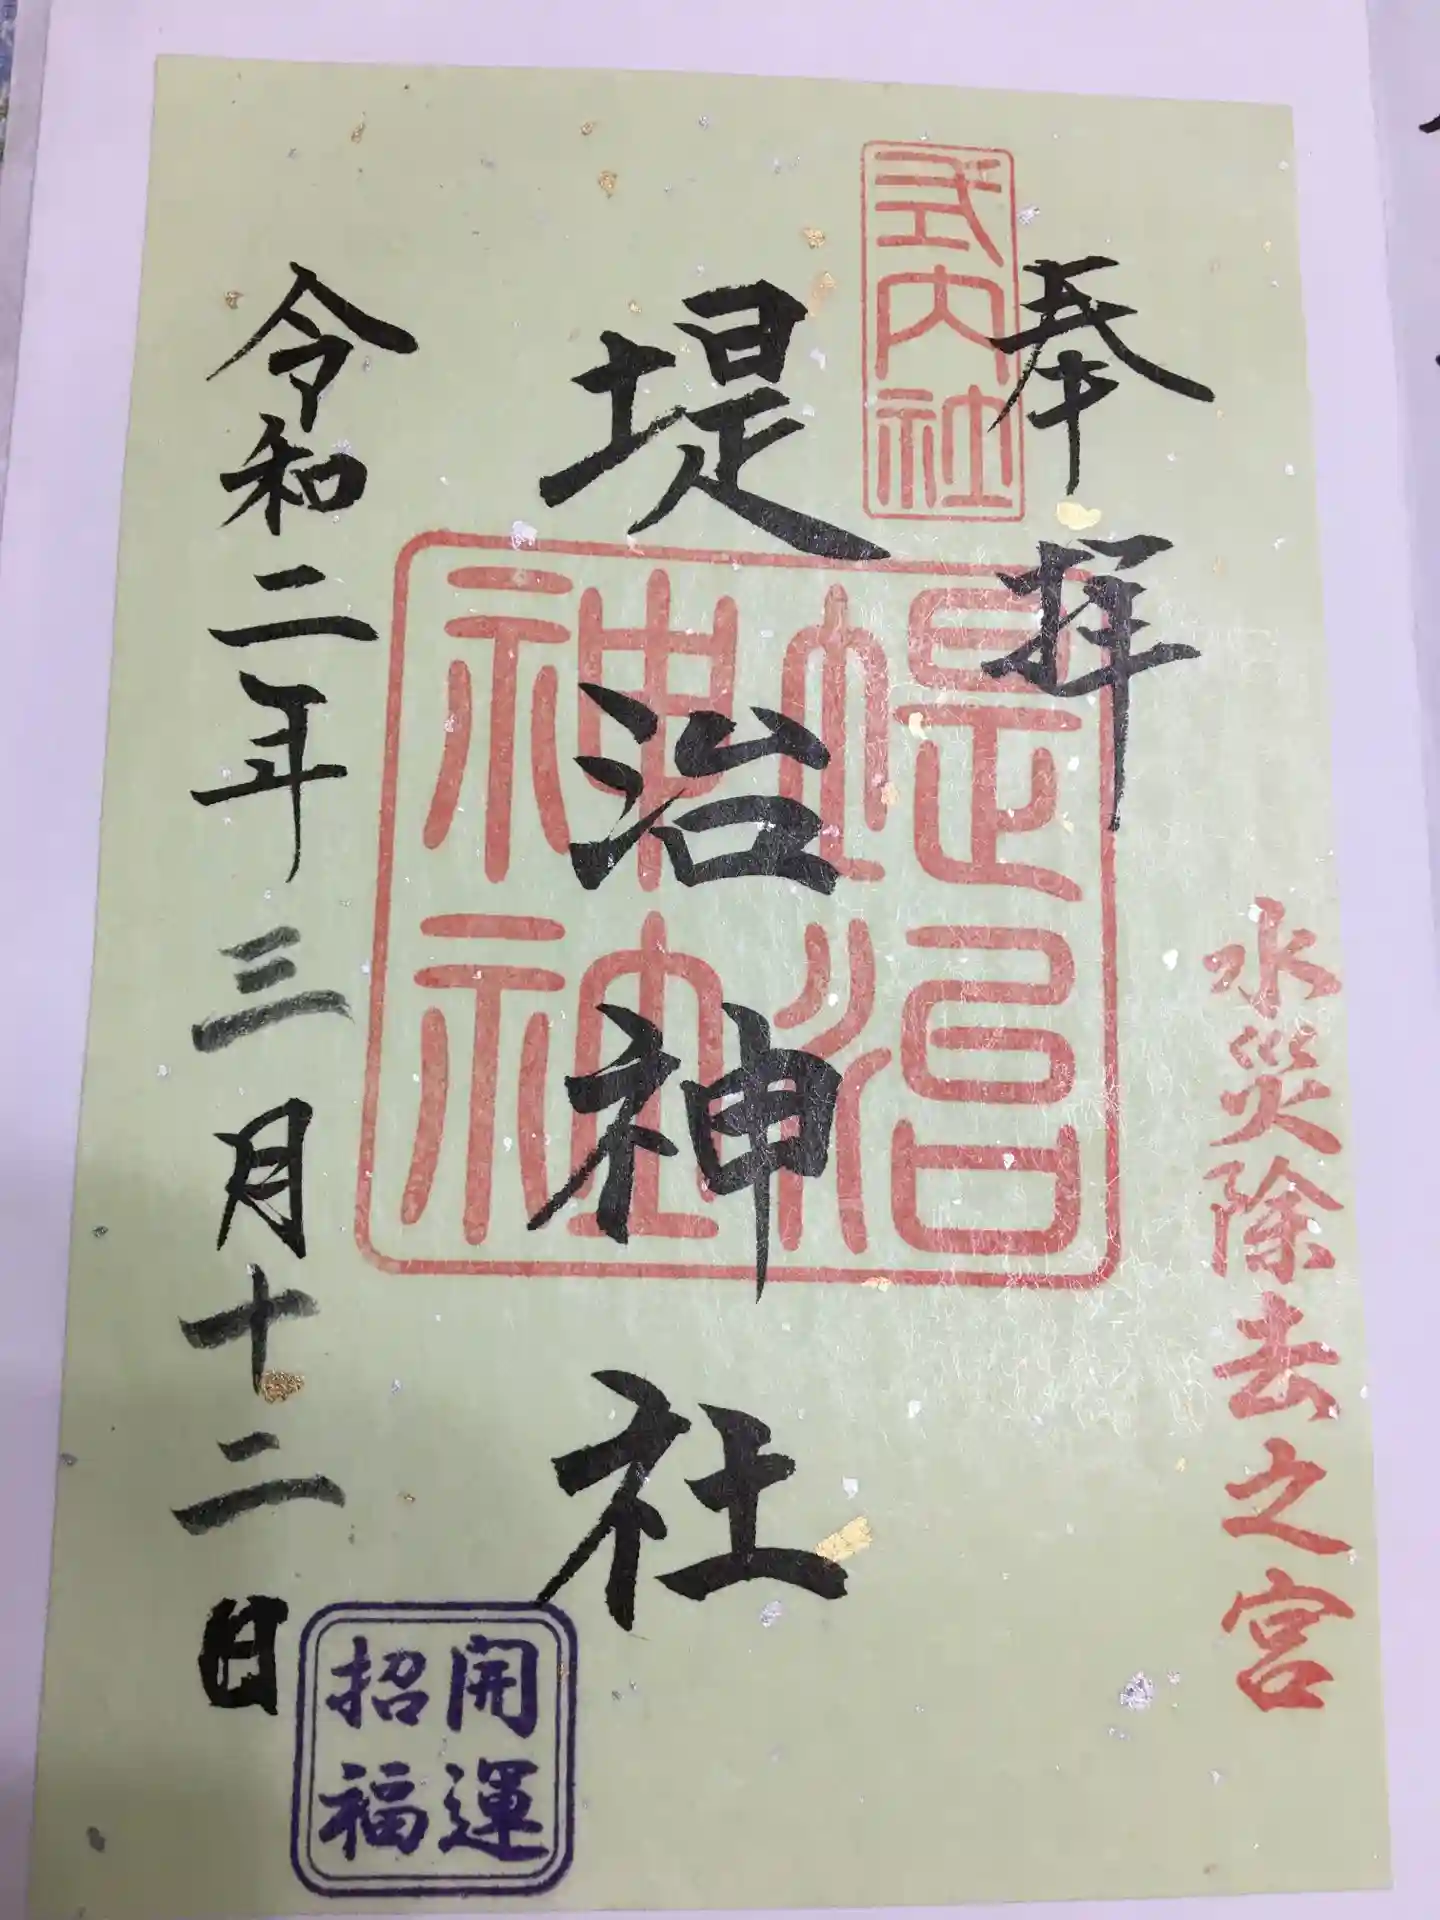 奉拝
式内社
水災除去之宮
堤治神社
堤治
神社
令和二年三月十二日
開運
招福